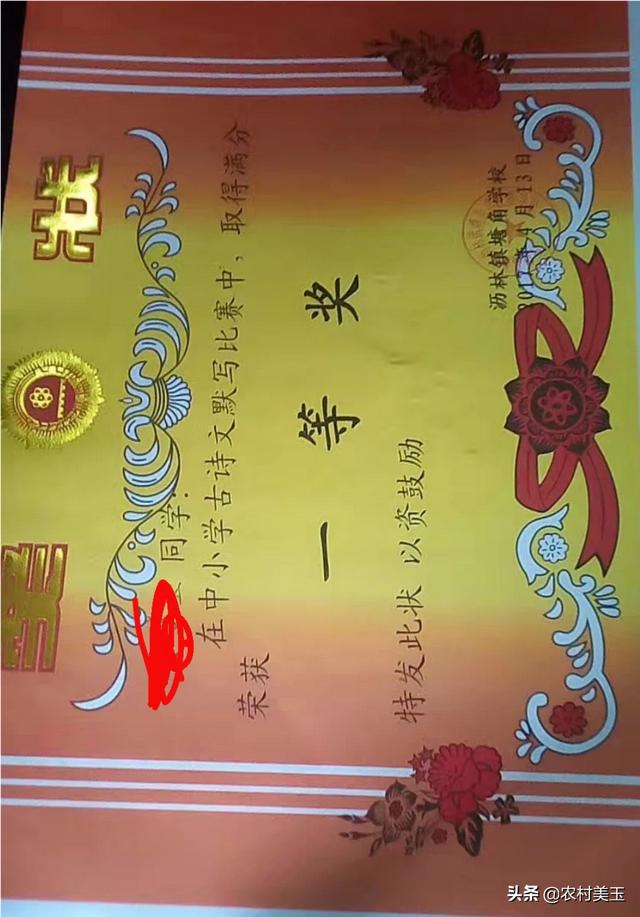 奖状
同学:
在中小学古诗文默写比赛中,取得满分
荣获
一等奖
特发此状 以资鼓励
沥林镇塘角学校
2017年4月13日
头条 @农村美玉